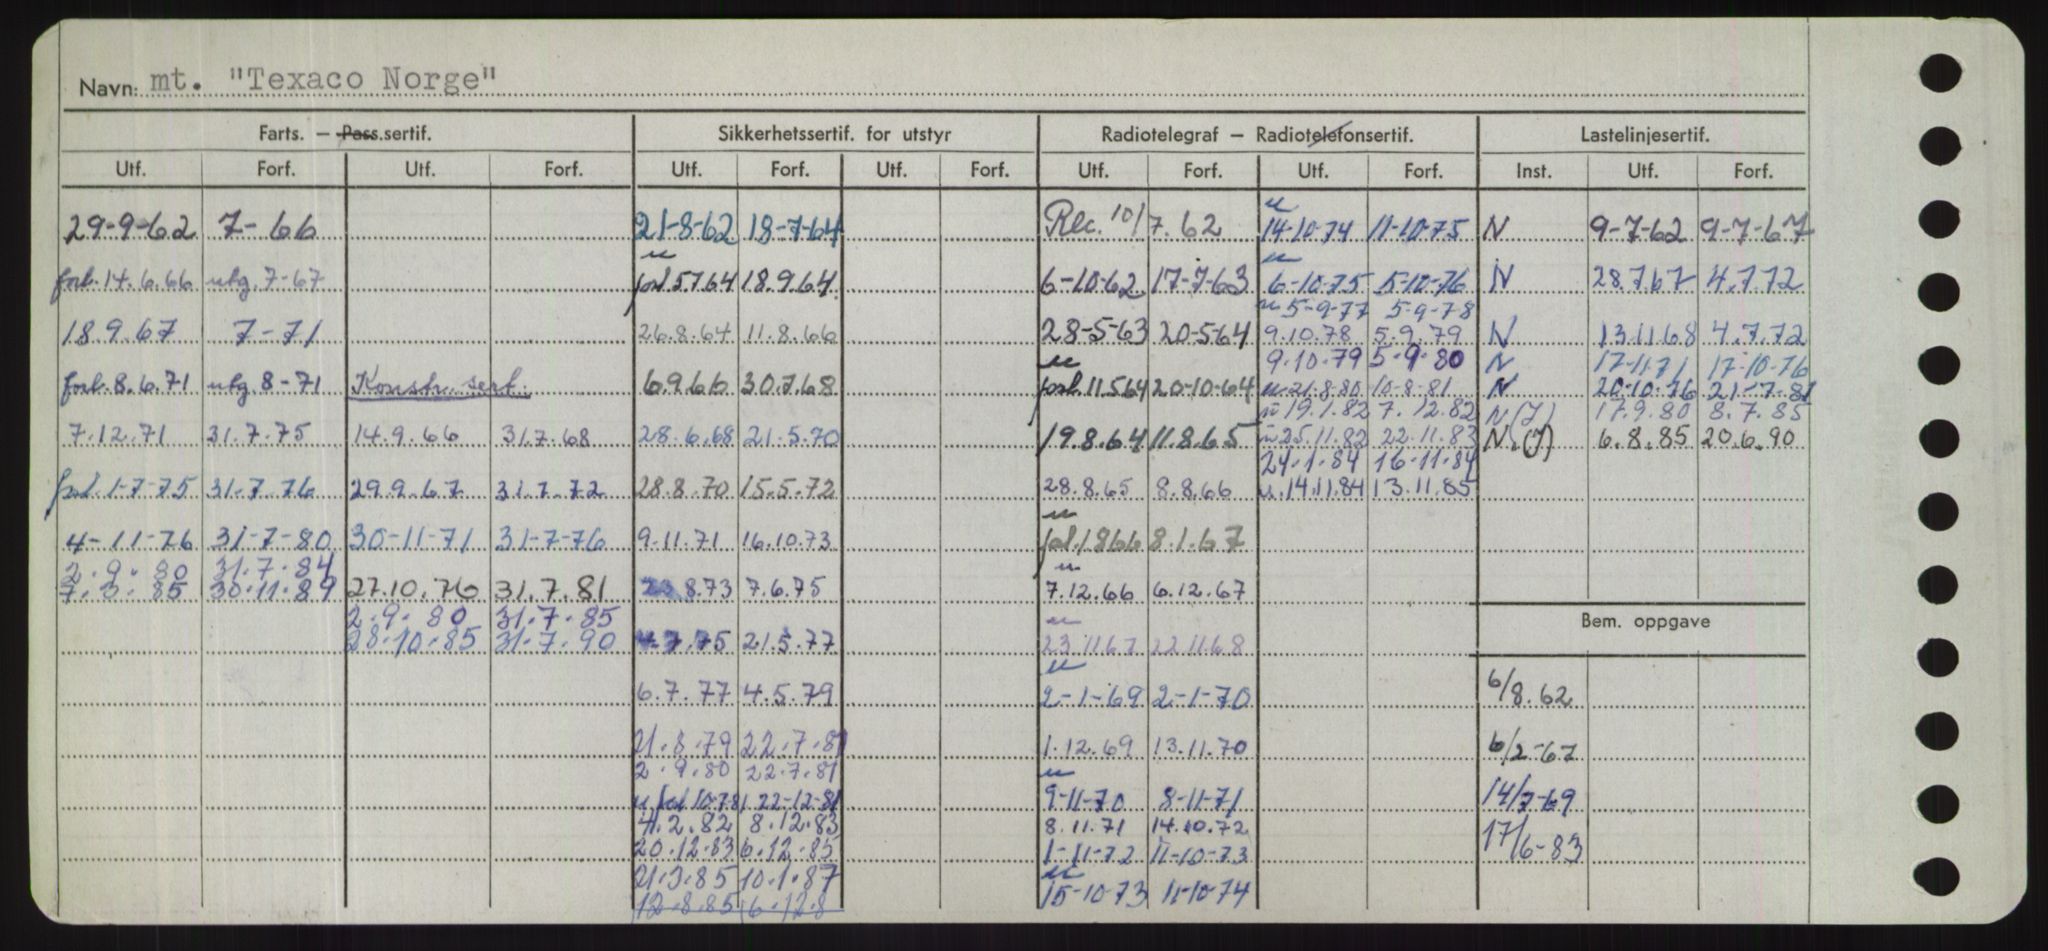 Navn: mt. "Texaco Norge"
Farts. — Pass.sertif. Sikkerhetssertif. for utstyr Radiotelegraf — Radiotelefonsertif. Lastelinjesertif.
Utf. Forf. Utf. Forf. Utf. Forf. Utf. Forf. Utf. Forf. Utf. Forf. Inst. Utf. Forf.
29-9-62 7-66
forl. 14.6.66 utg. 7-67
18.9.67 7-71
forl. 8.6.71 utg 8-71
7.12.71 31.7.75
forl. 1-7-75 31.7.76
4-11-76 31-7-80
2.9.80 31.7.84
7.3.85 30.11.89
Konstr. sert.
14.9.66 31.7.68
29.9.67 31.7.72
30-11-71 31-7-76
27.10.76 31.7.81
2.9.80 31.7.85
28.10.85 31.7.90
21-8-62 18-7-64
forl 5764 18.9.64
26.8.64 11.8.66
6.9.66 30.7.68
28.6.68 21.5.70
28.8.70 15.5.72
9.11.71 16.10.73
23.8.73 7.6.75
7.75 21.5.77
6.7.77 4.5.79
21.8.79 22.7.81
2.9.80 22.7.81
u forl 10-781 22-12-81
4.2.82 8.12.83
20.12.83 6.12.85
21.3.85 10.1.87
12.8.85 6.12.8
Rec. 10/7.62
6-10-62 17-7-63
28-5-63 20-5-64
u
forl. 11564 20-10-64
19.8.64 11.8.65
28.8.65 8.8.66
u
forl. 1866 8.1.67
u
7.12.66 6.12.67
u
23.11.67 22.11.68
u
2-1-69 2-1-70
1.12.69 13.11.70
u
9-11-70 8-11-71
8.11.71 14.10.72
1-11-72 11-10-73
u
15-10-73 11-10-74
u
14-10-74 11-10-75
u
6-10-75 5-10-76
u 5-9-77 5-9-78
9.10.78 5.9.79
9.10.79 5.9.80
u 21.8.80 10-8-81
u 19.1.82 7.12.82
u 25.11.82 22.11.83
24.1.84 16.11.84
u. 14.11.84 13.11.85
N 9-7-62 9-7-67
N 28.7.67 4.7.72
N 13.11.68 4.7.72
N 17-11-71 17-10-76
N 20-10-76 21-7-81
N (I) 17.9.80 8.7.85
N. (I) 6.8.85 20.6.90
Bem. oppgave
6/8.62
6/2-67
14/7-69
17/6-83